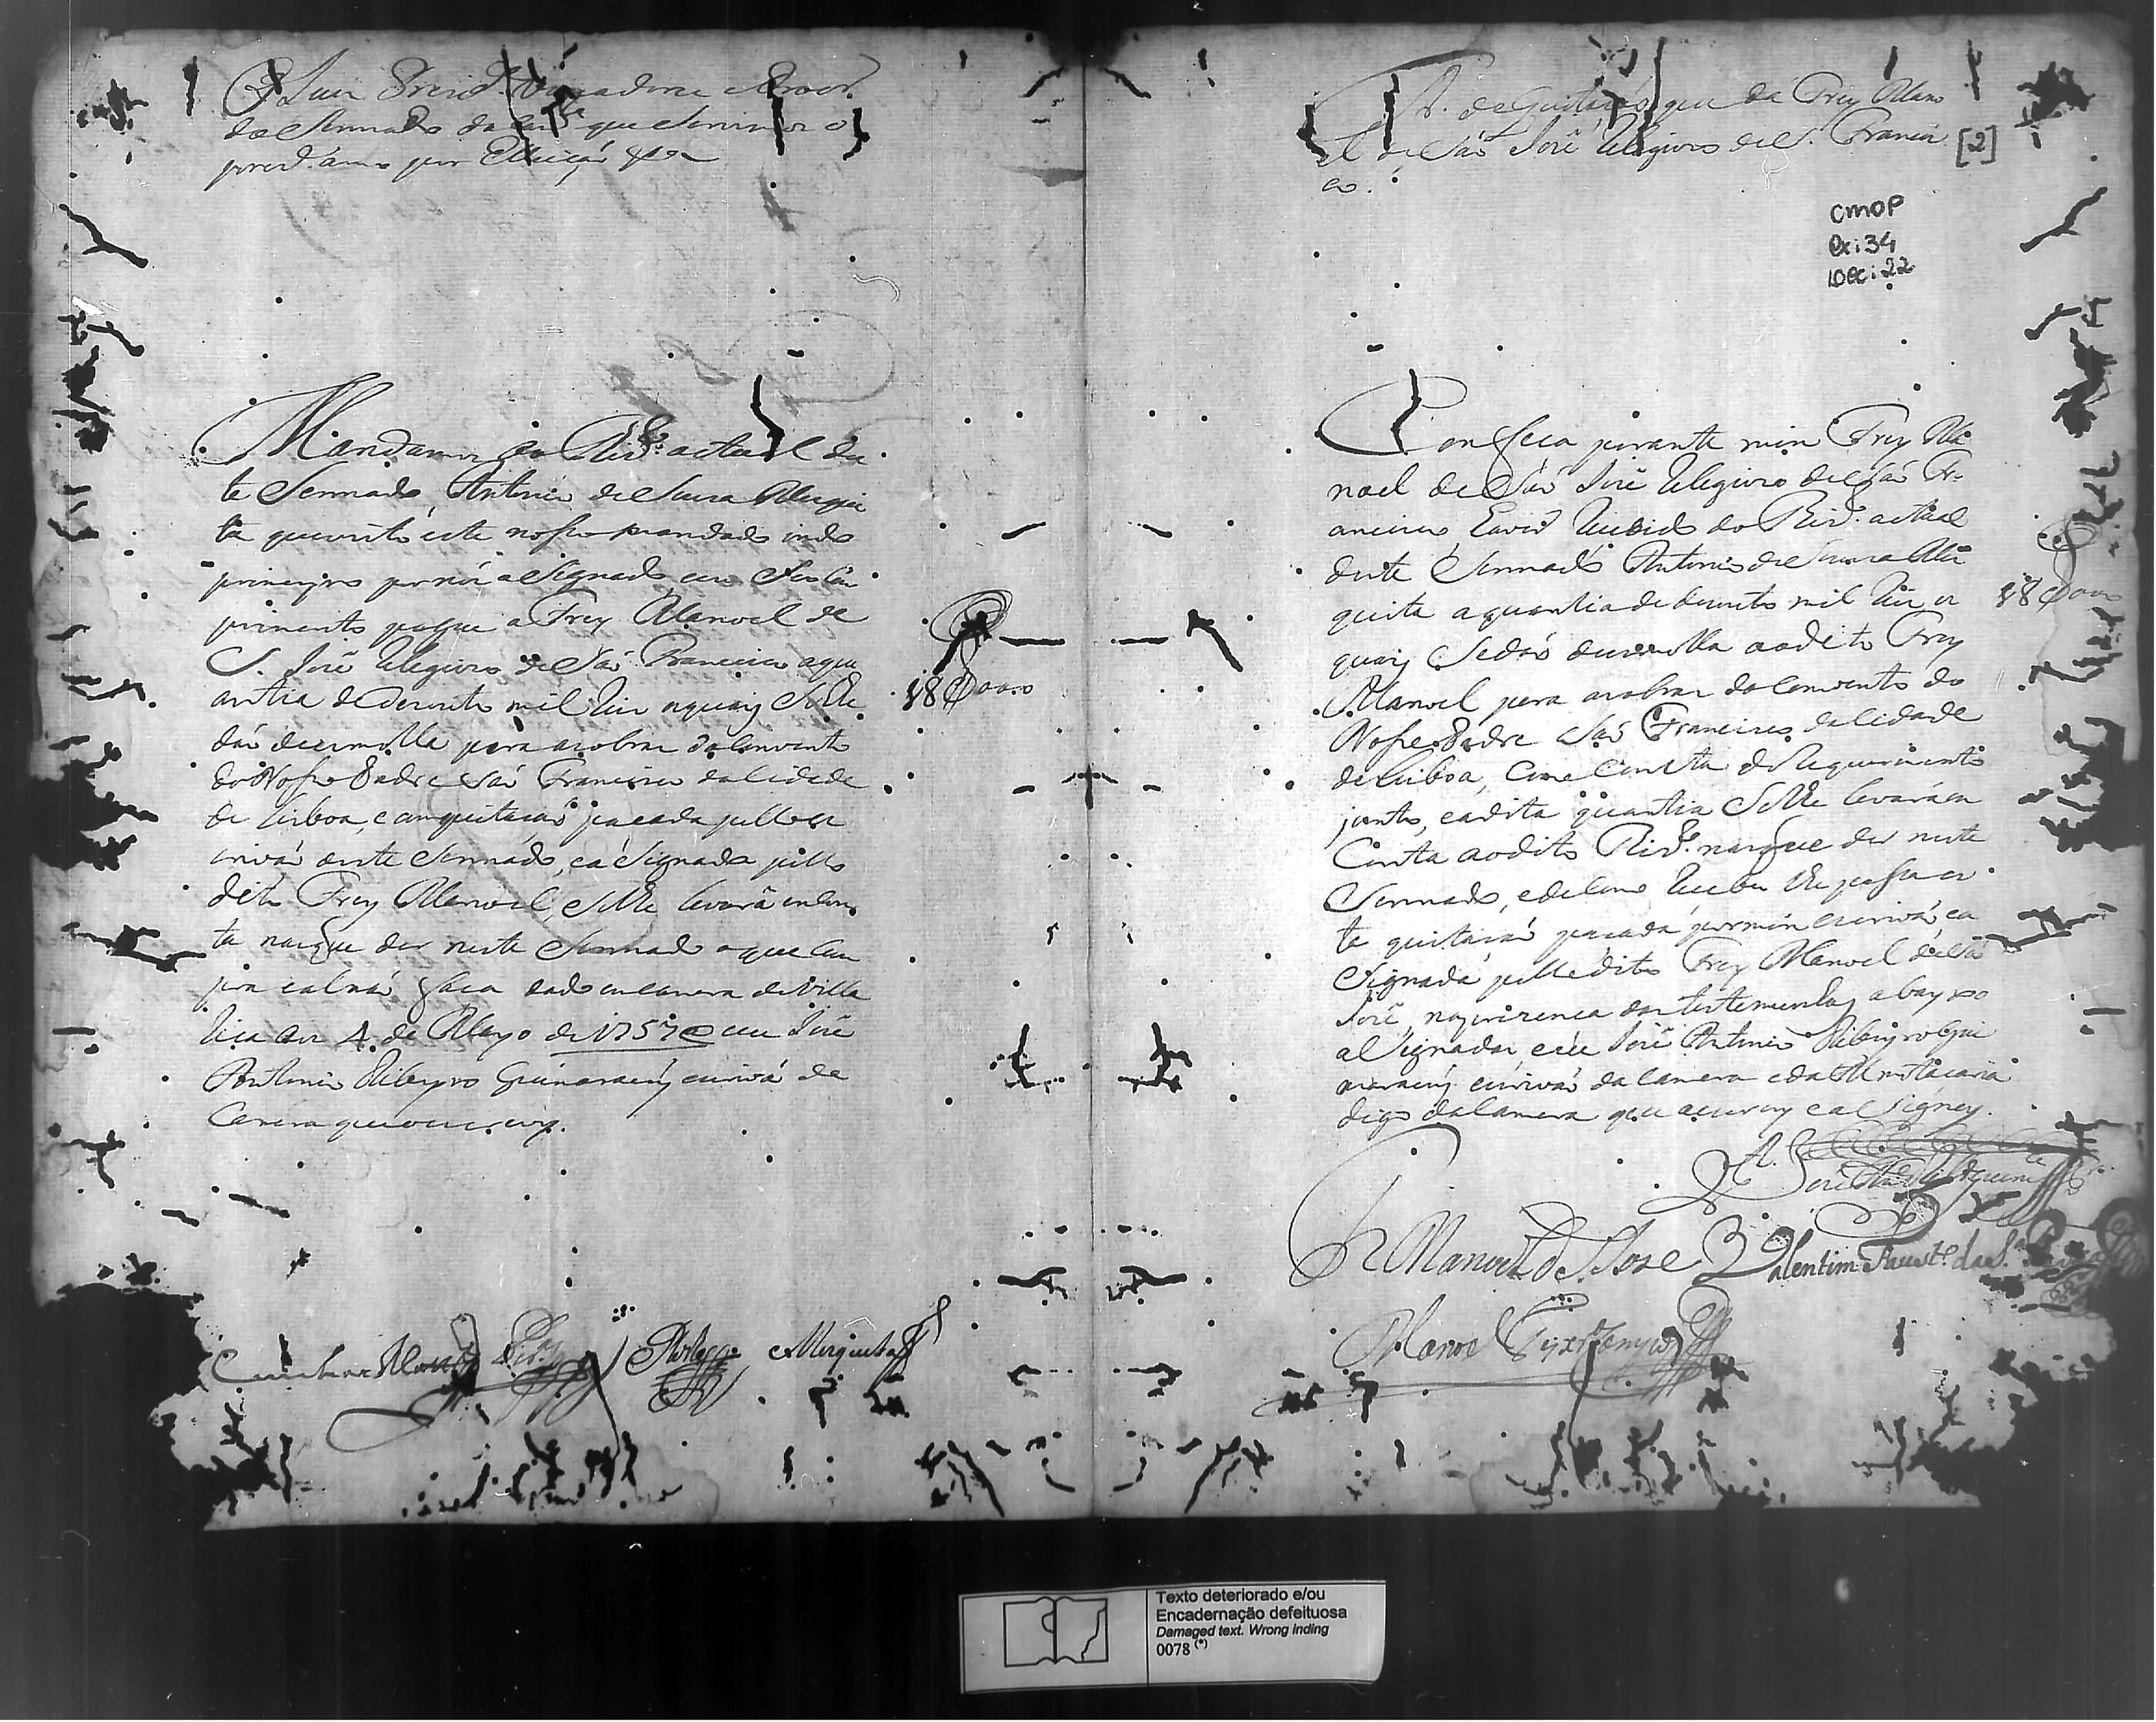 O Juis Prezid.e Vereadores e Procor.
do Sennado da Cam.ra que Servimos o
prezd. anno por Elleiçaõ &ª
Mandamos ao Thiz.ro actual des
te Sennado, Antonio de Souza Mesqui
ta que visto este nosso mandado indo
primeyro por nós aSignado, em Seu Cum
primento pague a Frey Manoel de
S. Jozê Relegiozo de Saõ Francisco aqu
antia de dezouto mil Reis aquais Se lhe
daõ de esmolla para as obras do Convento
do Nosso Padre Saõ Francisco da Cidade
de Lisboa, e com quitaçaõ paçada pello es
crivaõ deste Sennado, e aSignada pello
dito Frey Manoel, Se lhe levarâ em Con
ta nas que der neste Sennado o que Cum
pra e al naõ faca dado em Camera de Villa
Rica aos 4 de Mayo de 1757 e eu Jozê
Antonio Ribeyro Guimaraeñs escrivaõ da
Camera que o escrevy.
18$000
de quitaçaõ que dá Frey Mano
el de Saõ Jozê Relegiozo de S. Francis
co.
[2]
CMOP
Cx: 34
Doc: 22
Confeca perante mim Frey Ma
noel de Saõ Jozê Relegiozo de Saõ Fr
ancisco, haver Recebido do Thiz.ro actual
deste Sennado Antonio de Souza Mes
quita a quantia de dezouto mil Reis os
quais Se daõ de esmolla ao dito Frey
Manoel para as obras do Convento do
Nosso Padre Saõ Francisco da Cidade
de Lisboa, Como Consta do Requerimento
junto, e a dita quantia Se lhe levará em
Conta ao dito Thiz.ro nas que der neste
Sennado, e de Como Recebeu lhe passa es
ta quitacaõ pacada por mim escrivaõ e a
Signada pello dito Frey Manoel de Saõ
Jozê, na prezenca das testemunhas abayxo
aSignadas, e eu Jozê Antonio Ribeyro Gui
maraeñs escrivaõ da Camera e da Almotacaria
digo da Camera que a escrevy e aSigney.
18$000
Jozê Ant.o Rib.ro Guim.es
Fr Manoel de S. Joze
Valentim Faust.o da S.a
Manoel
Mesquita
Texto deteriorado e/ou
Encadernação defeituosa
Damaged text. Wrong inding
0078 (*)